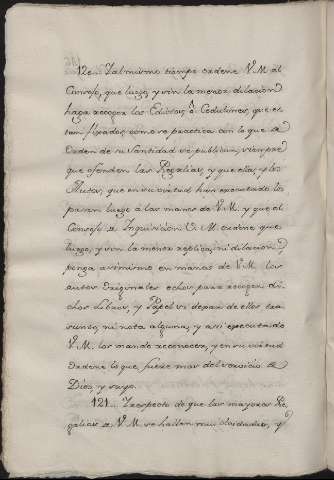 120.. Y al mismo tiempo ordene V.M. al
Consejo, que luego, y sin la menor dilacion
haga recoger los Edictos, ó Cedulones, que es-
tan fixados, como se practica con lo que de
orden de su Santidad se publica, siempre
que ofenden las Regalias, y que ellos, y los
Autos, que en su virtud han executado los
pasen luego á las manos de V.M. y que el
Consejo de Inquisicion V.M. ordene que
luego, y sin la menor replica, ni dilacion
ponga asimismo en manos de V.M. los
autos originales echos para recoger di-
chos Libros, y Papel sin dejar de ellos tra-
sunto, ni nota alguna, y asi executado
V.M. los mande reconocer, y en su virtud
ordene lo que fuere mas del servicio de
Dios y suyo.
121.. Y respecto de que las mayores Re-
galias de V.M. se hallan mui olvidadas, y